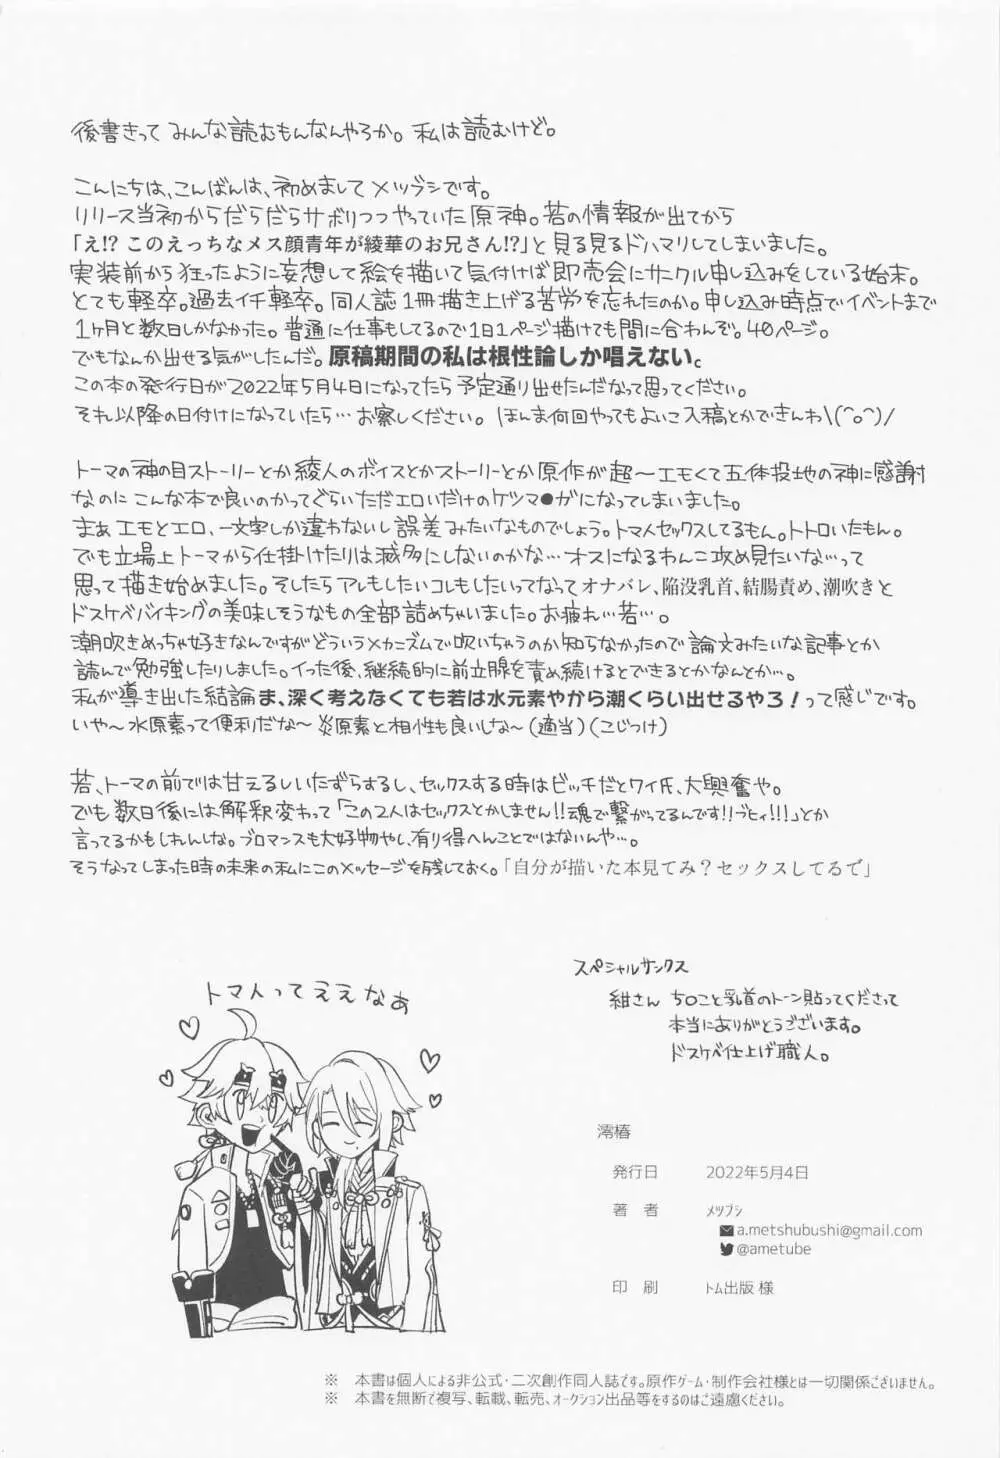 後書きって みんな読むもんなんやろか。私は読むけど。
こんにちは、こんばんは、初めましてメツブシです。
リリース当初からだらだらサボりつつやっていた原神。若の情報が出てから
「え!? このえっちなメス顔青年が綾華のお兄さん!?」と見る見るドハマりしてしまいました。
実装前から狂ったように妄想して絵を描いて気付けば即売会にサークル申し込みをしている始末。
とても軽卒。過去イチ軽卒。同人誌1冊描き上げる苦労を忘れたのか。申し込み時点でイベントまで
1ヶ月と数日しかなかった。普通に仕事もしてるので1日1ページ描けても間に合わんぞ。40ページ。
でもなんか出せる気がしたんだ。原稿期間の私は根性論しか唱えない。
この本の発行日が2022年5月4日になってたら予定通り出せたんだなって思ってください。
それ以降の日付けになっていたら…お察しください。ほんま何回やってもよいこ入稿とかできんわ\(^o^)/
トーマの神の目ストーリーとか綾人のボイスとかストーリーとか原作が超〜エモくて五体投地の神に感謝
なのにこんな本で良いのかってぐらいただエロいだけのケツマ●ガになってしまいました。
まぁエモとエロ、一文字しか違わないし誤差みたいなものでしょう。トマ人セックスしてるもん。トトロいたもん。
でも立場上トーマから仕掛けたりは滅多にしないのかな…オスになるわんこ攻め見たいな…って
思って描き始めました。そしたらアレもしたいコレもしたいってなってオナバレ、陥没乳首、結腸責め、潮吹きと
ドスケベバイキングの美味しそうなもの全部詰めちゃいました。お疲れ…若…。
潮吹きめっちゃ好きなんですがどういうメカニズムで吹いちゃうのか知らなかったので論文みたいな記事とか
読んで勉強したりしました。イった後、継続的に前立腺を責め続けるとできるとかなんとか…。
私が導き出した結論ま、深く考えなくても若は水元素やから潮くらい出せるやろ！って感じです。
いや〜水原素って便利だな〜炎原素と相性も良いしな〜(適当)(こじつけ)
若、トーマの前では甘えるしいたずらするし、セックスする時はビッチだとワイ氏、大興奮や。
でも数日後には解釈変わって「この2人はセックスとかしません!!魂で繋がってるんです!!ブヒィ!!!」とか
言ってるかもしれんしな。ブロマンスも大好物やし、有り得へんことではないんや…。
そうなってしまった時の未来の私にこのメッセージを残しておく。「自分が描いた本見てみ？セックスしてるで」
トマ人ってええなぁ
スペシャルサンクス
紺さん ち○こと乳首のトーン貼ってくださって
本当にありがとうございます。
ドスケベ仕上げ職人。
澪椿
発行日 2022年5月4日
著 者 メツブシ
a.metshubushi@gmail.com
@ametube
印 刷 トム出版 様
※ 本書は個人による非公式・二次創作同人誌です。原作ゲーム・制作会社様とは一切関係ございません。
※ 本書を無断で複写、転載、転売、オークション出品等をするのはご遠慮ください。